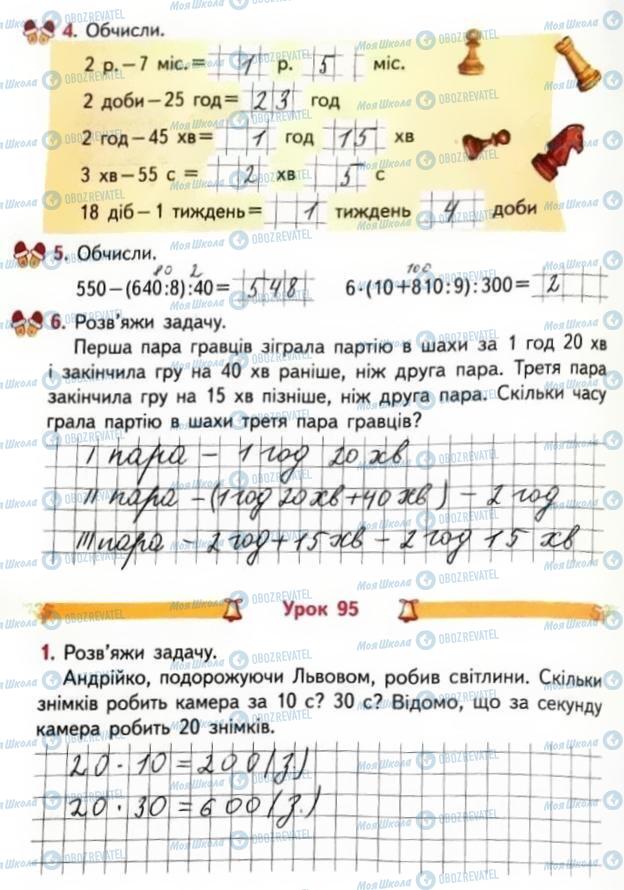 4. Обчисли.
2 р. – 7 міс. = 1 р. 5 міс.
2 доби – 25 год = 23 год
2 год – 45 хв = 1 год 15 хв
3 хв – 55 с = 2 хв 5 с
18 діб – 1 тиждень = 1 тиждень 4 доби
5. Обчисли.
80 2 100
550 – (640:8):40 = 548 6·(10+810:9):300 = 2
6. Розв'яжи задачу.
Перша пара гравців зіграла партію в шахи за 1 год 20 хв
і закінчила гру на 40 хв раніше, ніж друга пара. Третя пара
закінчила гру на 15 хв пізніше, ніж друга пара. Скільки часу
грала партію в шахи третя пара гравців?
I пара – 1 год 20 хв
II пара – (1 год 20 хв + 40 хв) – 2 год
III пара – 2 год + 15 хв – 2 год 15 хв
Урок 95
1. Розв'яжи задачу.
Андрійко, подорожуючи Львовом, робив світлини. Скільки
знімків робить камера за 10 с? 30 с? Відомо, що за секунду
камера робить 20 знімків.
20 · 10 = 200 (з.)
20 · 30 = 600 (з.)
Моя Школа
OBOZREVATEL